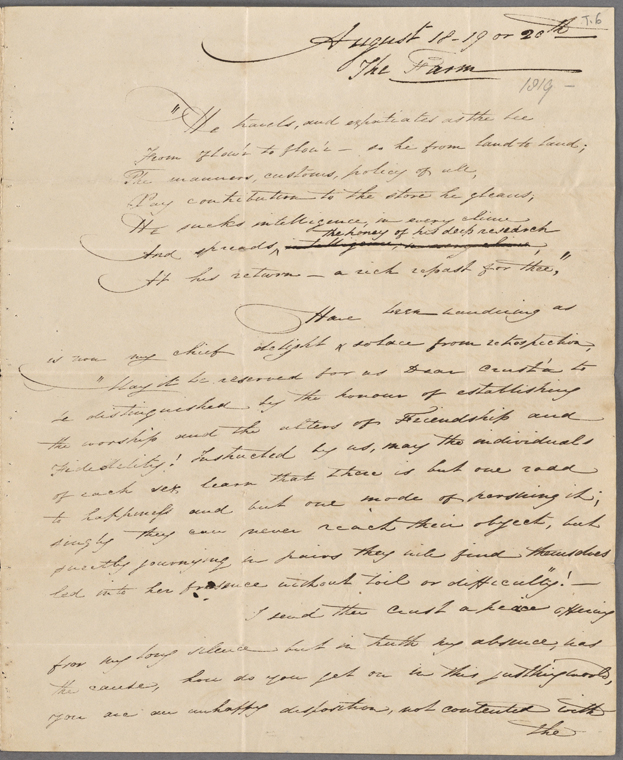 T.6
August 18-19 or 20th
The Farm
1819 -
"He travels, and expatiates as the bee
From flow'r to flow'r - so he from land to land;
The manners, customs, policy of all,
Pay contribution to the store he gleans;
He sucks intelligence in every clime
the honey of his deep research
And spreads, intelligence, in every clime,
At his return - a rich repast for thee,"
Have been wandering as
is now my chief delight & solace from retrospection,
"May it be reserved for us Dear Crusta to
be distinguished by the honour of establishing
the worship and the alters of Friendship and
Fidelity! Instructed by us, may the individuals
of each sex, learn that there is but one road
to happiness and but one mode of persuing it;
singly they can never reach their object, but
sweetly journying in pairs they will find themselves
led into her presence without toil or difficulty"! -
I send thee Crust a peace offering
for my long silence but in truth my absence, was
the cause, how do you get on in this justling world,
you are an unhappy disposition, not contented with
the